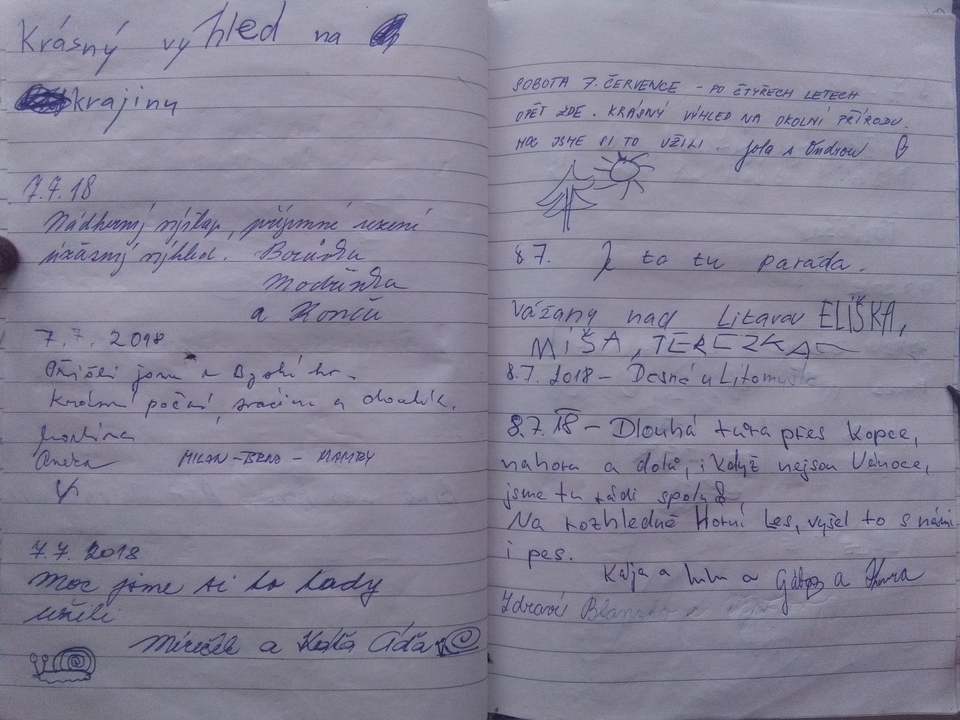 Krásný výhled na
krajiny
7.7.18
Nádherný výšlap, příjemné posezení
úžasný výhled. Borůvka
Modřínka
a Konču
7.7. 2018
Přišli jsme z
Krásné počasí, a
Martina
MILAN - BRNO -
7.7. 2018
Moc jsme si to tady
užili
Mireček a Káťa Áďa
SOBOTA 7. ČERVENCE - PO ČTYŘECH LETECH
OPĚT ZDE. KRÁSNÝ VÝHLED NA OKOLNÍ PŘÍRODU.
MOC JSME SI TO UŽILI. Jola s Ondrou
8 7. Je to tu paráda.
Vážany nad Litavou ELIŠKA,
MÍŠA, TEREZKA
8.7. 2018 - Desná u Litomyšle
8.7. 18 - Dlouhá túra přes kopce,
nahoru a dolů, i když nejsou Vánoce,
jsme tu rádi spolu
Na rozhledně Horní Les, vyšel to s námi
i pes.
Kája a a Gábog a
Zdraví